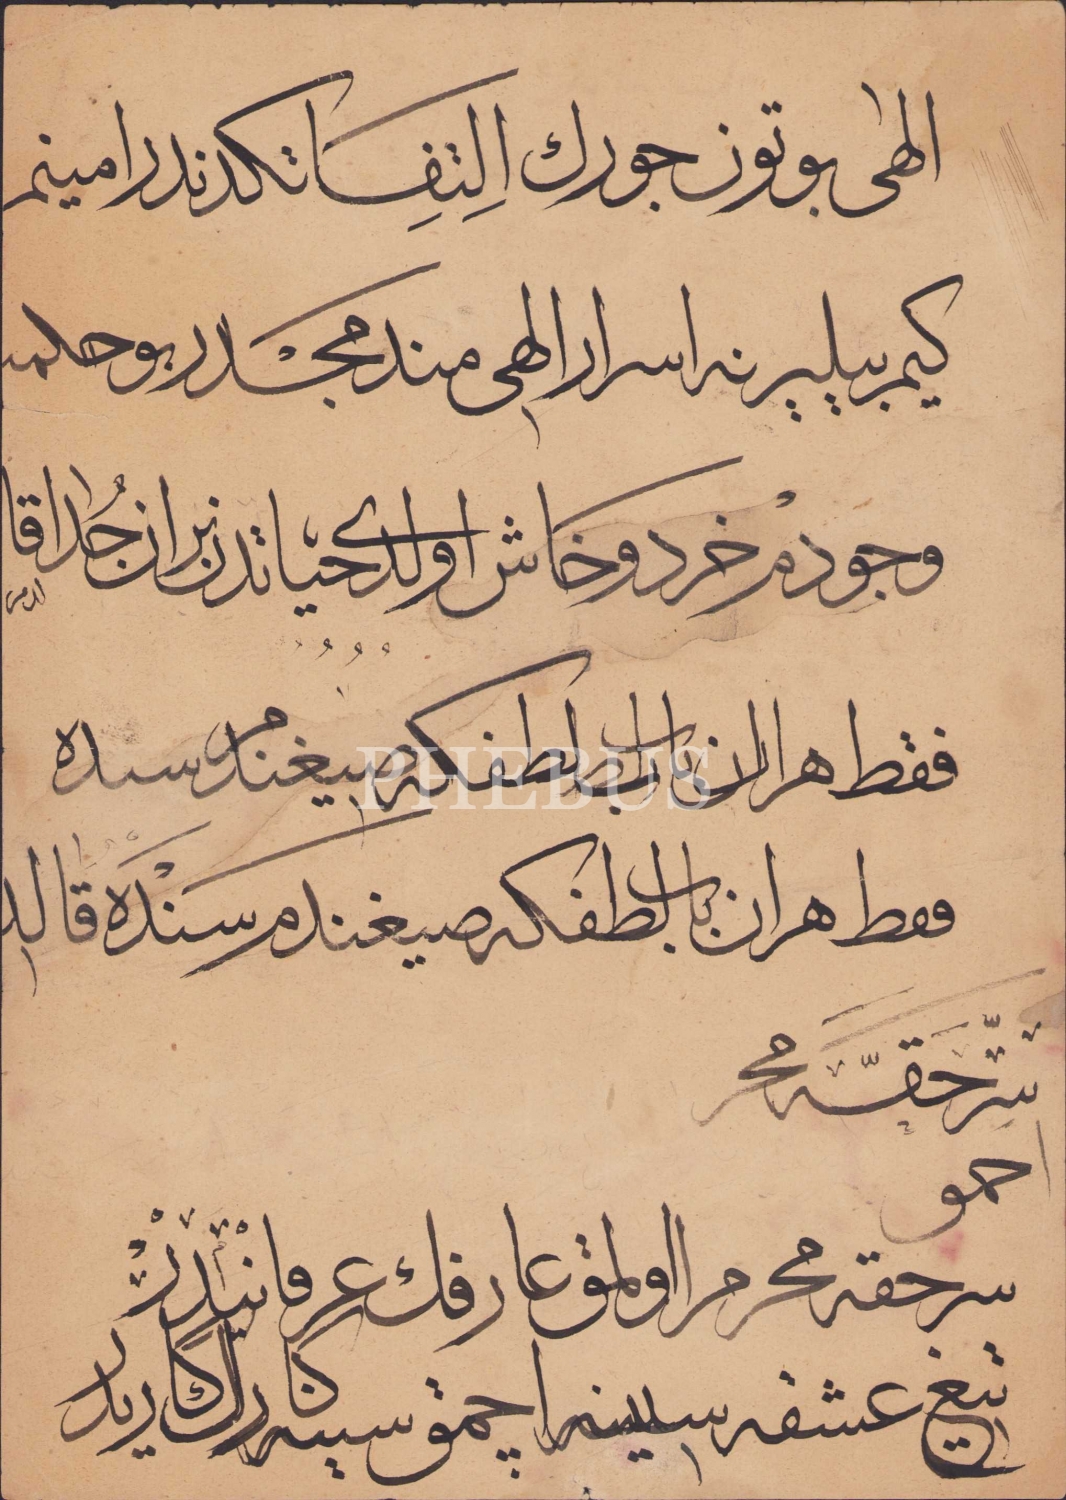 الهی بوتون جورك اِلتِفِاتكدندر امینم
کیم بیلیر نه اسرار الهی مندمجدر بو
وجودم خرد وخاش اولدی حیاتدن بران جُدا
فقط هر ان باب لطفکه صیغندم سنده
فقط هر ان باب لطفکه صیغندم سندَه قالد
سِرِّ حقَّه محر
سر حقه محرم اولمق عارفك عرفانیدر
تیغ عشقه سینه اچمق سینه
PHEBUS